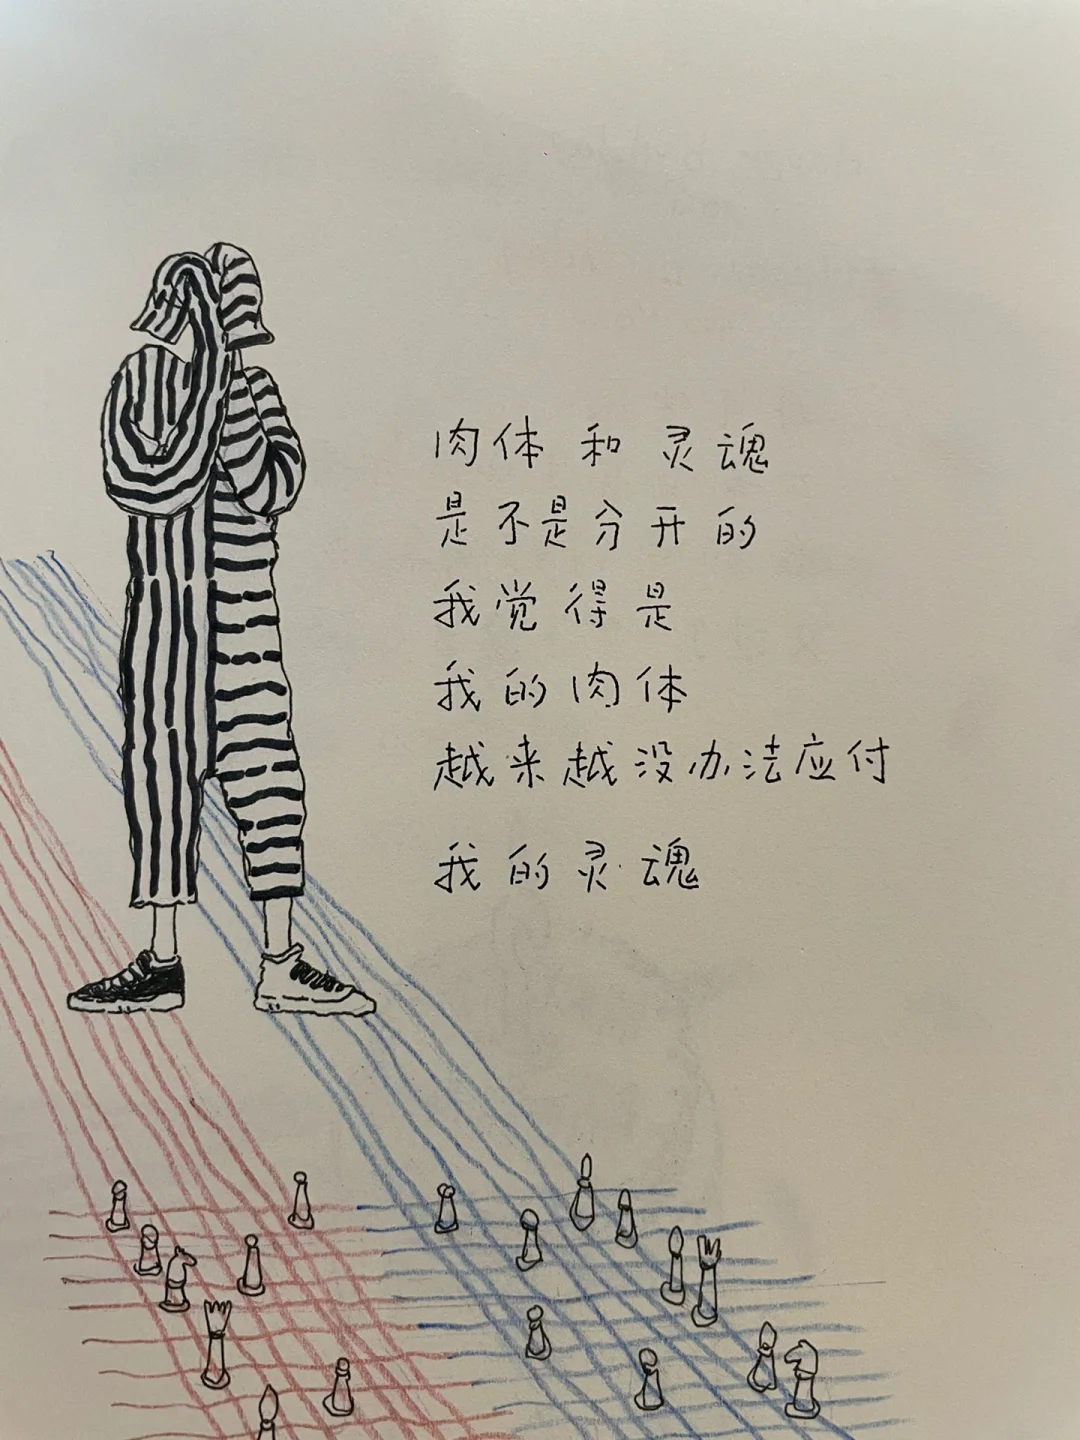 肉体和灵魂
是不是分开的
我觉得是
我的肉体
越来越没办法应付
我的灵魂